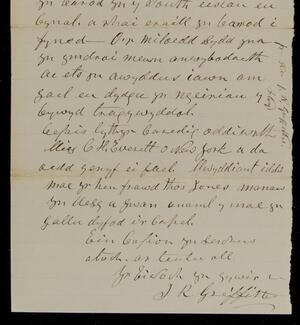 yn barod yn y South eisiau eu
cynal, a rhai eraill yn barod i
fyned — O'r miloedd sydd yna
yn ymdroi mewn anwybodaeth
ac ets yn awyddus iawn am
gael eu dysgu yn ngeiriau y
bywyd tragywyddol.
Cefais lythyr caredig oddiwrth
Miss C H Everett o New York a da
oedd genyf ei gael Llwyddiant iddi
mae yr hen frawd Thos Jones
yn llesg a gwan anaml y mae yn
gallu dyfod i'r Capel.
Ein Cofion yn serchus
atoch. ar teulu oll
Yr Eiddoch yn gywir
J R Griffith